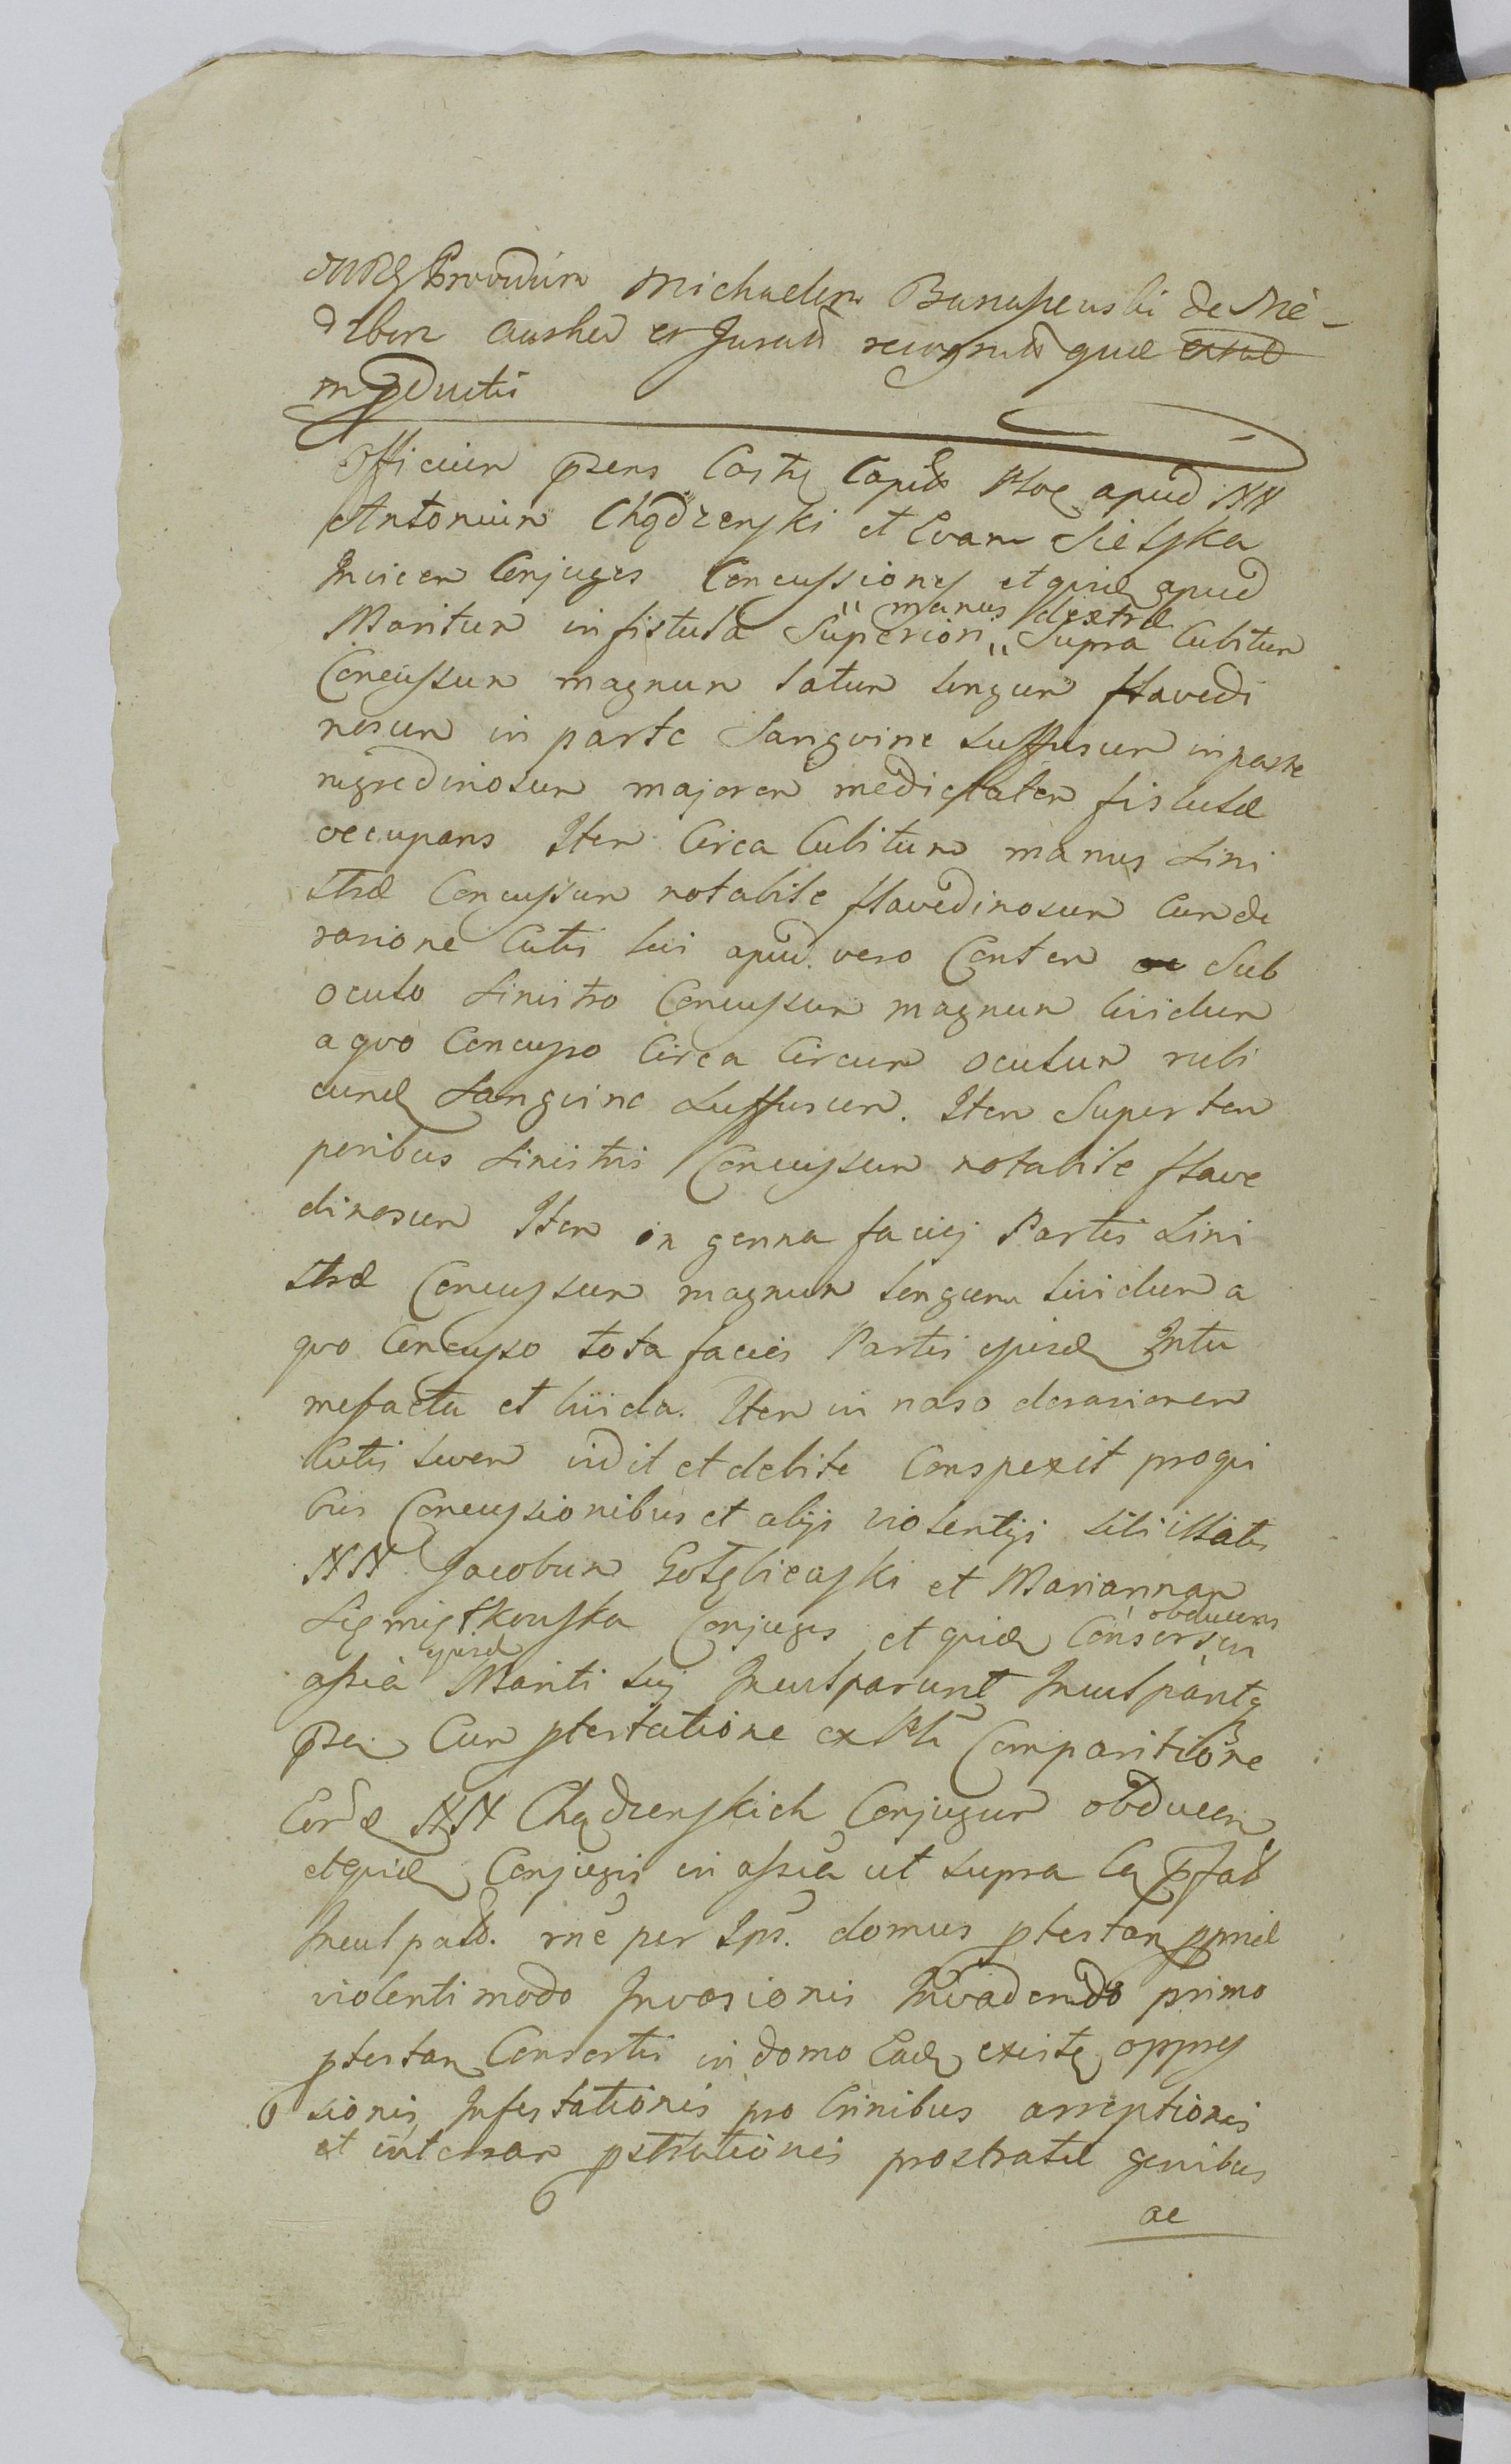 Providum Michaelem de Nie-
et Jurati quæ
Officium pñens Castr Capit Ploc apud NN
Antonium Chądzeński et Evam Sielska
Invicem Conjuges Concussiones et quid apud
Maritum in fistula Superiori " manus dextræ " Supra Cubitum
Concussum magnum latum longum flavedi
nosum in parte Sanguine suffusum in parte
nigredinosum majorem medietatem fistulæ
occupans Item Circa Cubitum manus sini
stræ Concussum notabile flavedinosum Cum de
rasione Cutis sui apud vero Consortem Sub
oculo sinistro Concussum magnum lividum
a quo Concusso Circa Circum oculum rubi
cund Sanguine suffusum. Item Super tem
poribus sinistris Concussum notabile flave
dinosum Item in genna faciej Partis sini
stræ Concussum magnum longum lividum a
quo Concusso tota facies Partis ejusd Intu
mefacta et livida. Item in naso derasionem
Cutis suem vidit et debite Conspexit pro qui
bus Concussionibus et alijs violentijs sibi illatis
NN Jacobum Gołębieaski et Mariannam
Conjuges et quid Consortem obducens
assia ejusd Mariti sui Inculparunt
Cum ptestatione ex Comparitione
Eord NN Chądzenskich Conjugum obducen
et quid Conjugis in assia ut supra Ca pfat
Inculpato. rne per Ips. domus ptestan
violenti modo Invasionis Invadendo primo
ptestan Consortis in domo Ead existen oppres
sionis Infestationis pro Crinibus arreptionis
et in terram pstrationis prostratæ genibus
ac